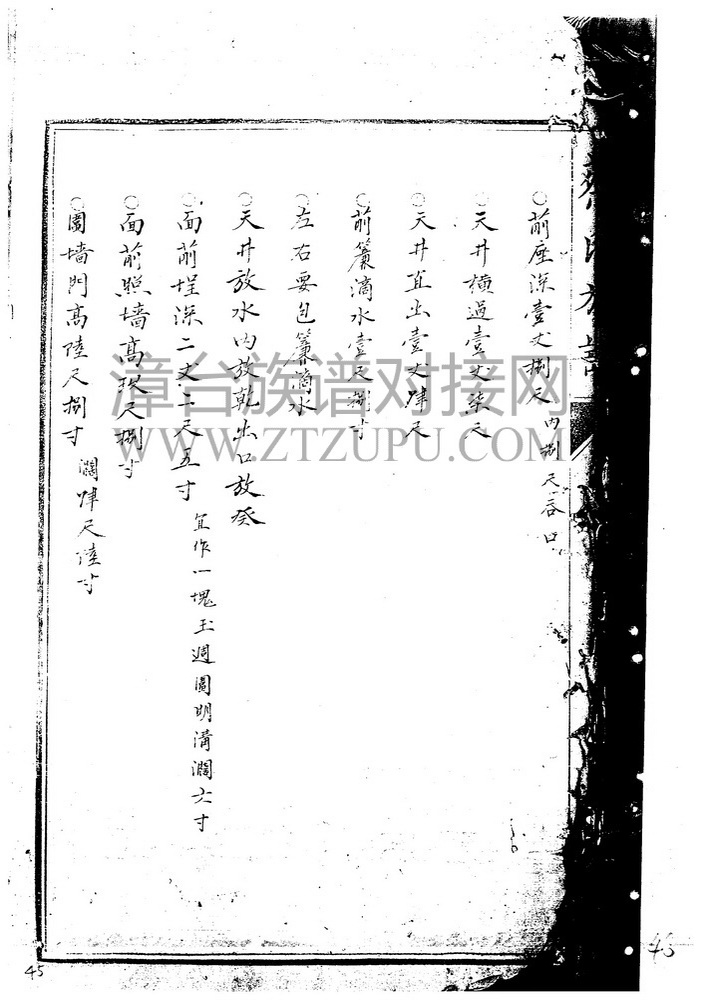 ○前座深壹丈捌尺 內捌尺唇口
○天井橫過壹丈柒尺
○天井直出壹丈肆尺
○前簾滴水壹尺捌寸
○左右要包簾滴水
○天井放水內放乾出口放癸
○面前埕深二丈二尺五寸 宜作一塊玉週圍明溝濶六寸
○面前照墻高玖尺捌寸
○圍墻門高陸尺捌寸 濶肆尺陸寸
漳台族谱对接网
WWW.ZTZUPU.COM
45
45